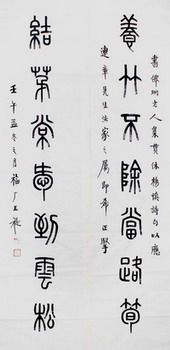 養竹不除當路筍
書傅 老人集貫休楊慎詩句以應
先生法家之屬即希正擘
結茅常 到雲松
壬午孟冬之月福厂王禔